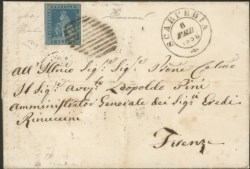 SCARPERIA
6
FEB
all' Illmo Sigr. Sigr. Prone Colmo
Il Sigr. Avvto. Leopoldo Pini
Amministratore Generale dei Sigri. Eredi
Rinuccini
Firenze